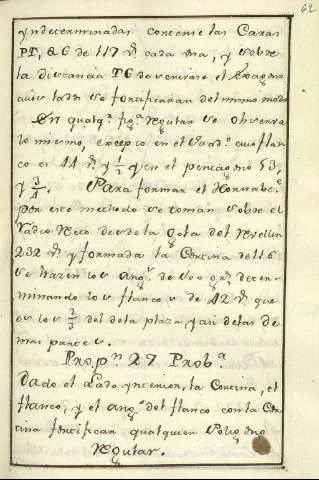 62
yndeterminadas concense las Caras
PT, & G de 117 v.s cada una, y sobre
la distancia TG descrivase el Exagono
cuios lados se fortificaran del mismo modo
En qualq.a fig.a regular se observa
lo mismo, excepto en el Quad.o cuio flan
co es 44 v.s y 1/2 y en el pentagono 53,
y 3/4. Para formar el Hornabe.e
por este methodo se toman sobre el
radio recto desde la gola del Revellin
232 v.s y formada la Cortina de 116
se hazen los ang.s de 100 gr.s deter-
minando los flancos de 42 v.s que
es los 2/3 del de la plaza y asi de las de
mas partes.
Prop.n 27 Prob.a
Dado el Lado ynterior, la Cortina, el
flanco, y el ang.o del flanco con la Cor
tina fortificar qualquier Poligono
regular.